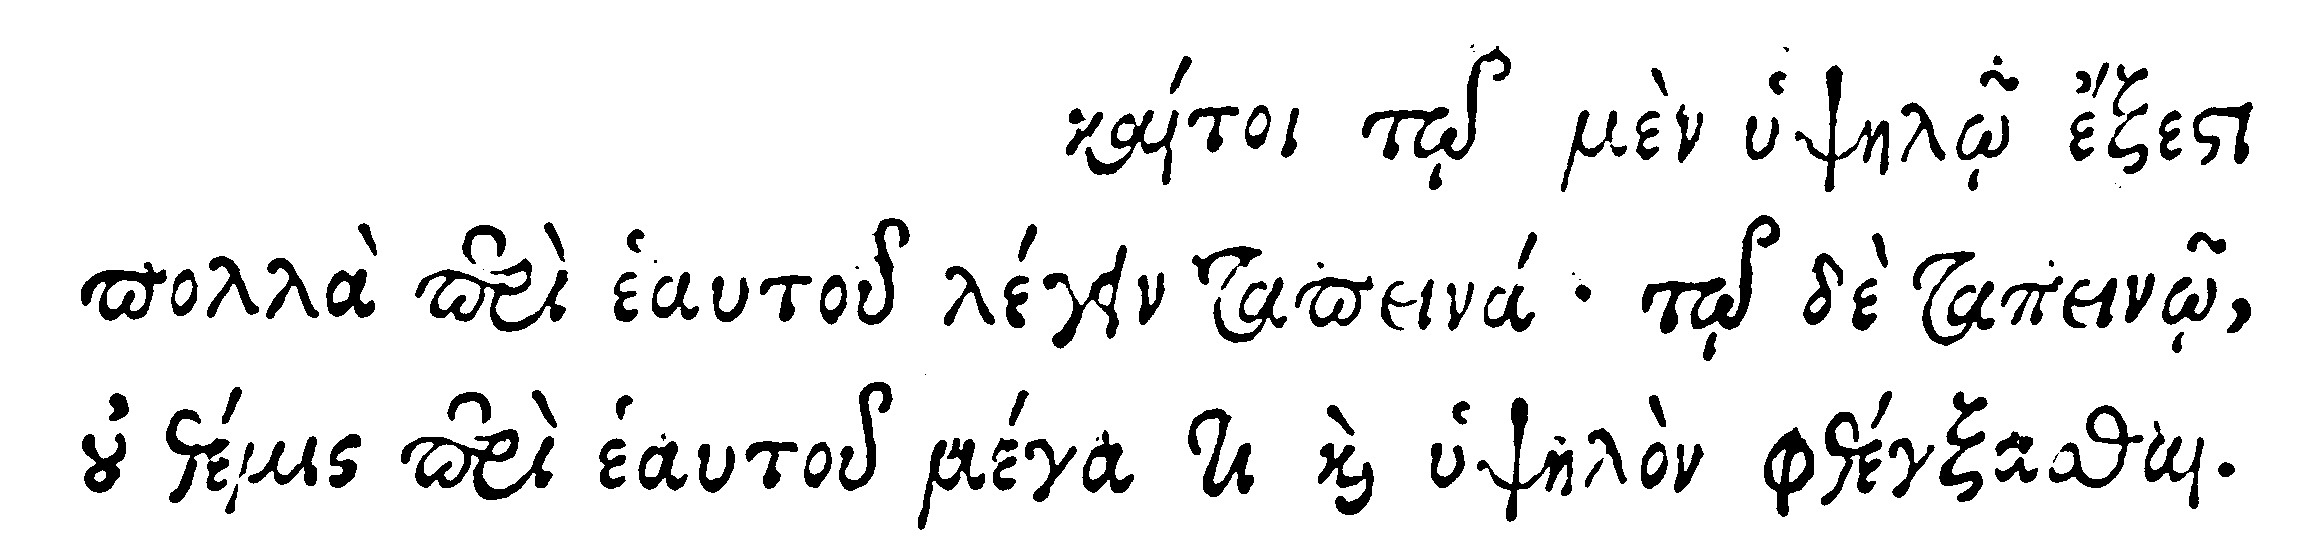 καίτοι τῷ μὲν ὑψηλῷ ἔξεστι
πολλὰ περὶ ἑαυτοῦ λέγειν ταπεινά · τῷ δὲ ταπεινῷ,
οὐ θέμις περὶ ἑαυτοῦ μέγα τι καὶ ὑψηλὸν φθέγξασθαι.